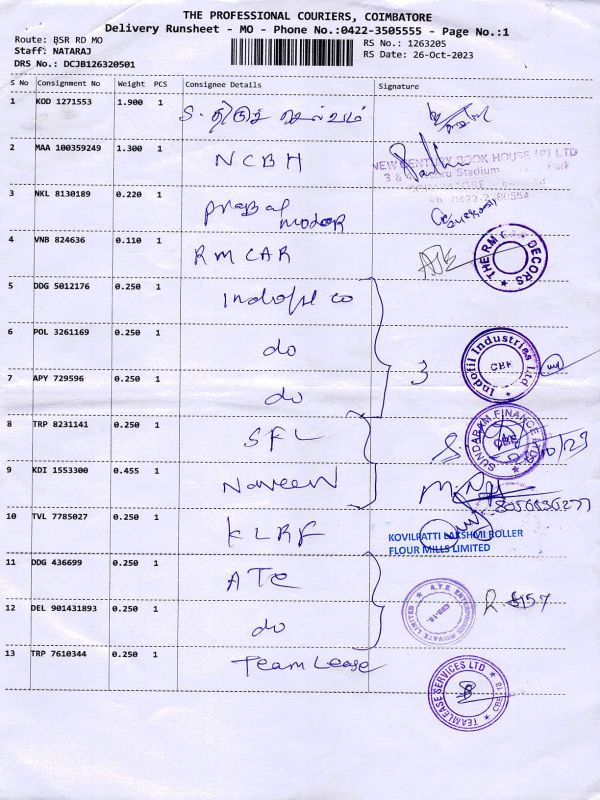 THE PROFESSIONAL COURIERS, COIMBATORE
Delivery Runsheet - MO - Phone No.:0422-3505555 - Page No.:1
Route: BSR RD MO
RS No.: 1263205
Staff: NATARAJ
RS Date: 26-Oct-2023
DRS No.: DCJB126320501
S No Consignment No Weight PCS Consignee Details Signature
1 KOD 1271553 1.900 1 S. திருச் செல்வம்
2 MAA 100359249 1.300 1 NCBH
NEW CENTURY BOOK HOUSE (P) LTD
3 NKL 8130189 0.220 1 Prabal
4 VNB 824636 0.110 1 RMCAR
THE RM CAR DECORS
5 DDG 5012176 0.250 1 Indofil co
6 POL 3261169 0.250 1 do
Indofil Industries Ltd
CBE
7 APY 729596 0.250 1 do
3
8 TRP 8231141 0.250 1 SFL
SUNDARAM FINANCE LTD
9 KDI 1553300 0.455 1 Naveen
10 TVL 7785027 0.250 1 KLRF
KOVILPATTI LAKSHMI ROLLER
FLOUR MILLS LIMITED
11 DDG 436699 0.250 1 ATE
A.T.E. ENTERPRISES PRIVATE LIMITED
CBE-18
12 DEL 901431893 0.250 1 do
13 TRP 7610344 0.250 1 Team Lease
TEAMLEASE SERVICES LTD
CBE 18